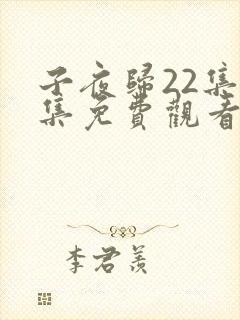 子夜歸22集
集免費觀看
李君羨